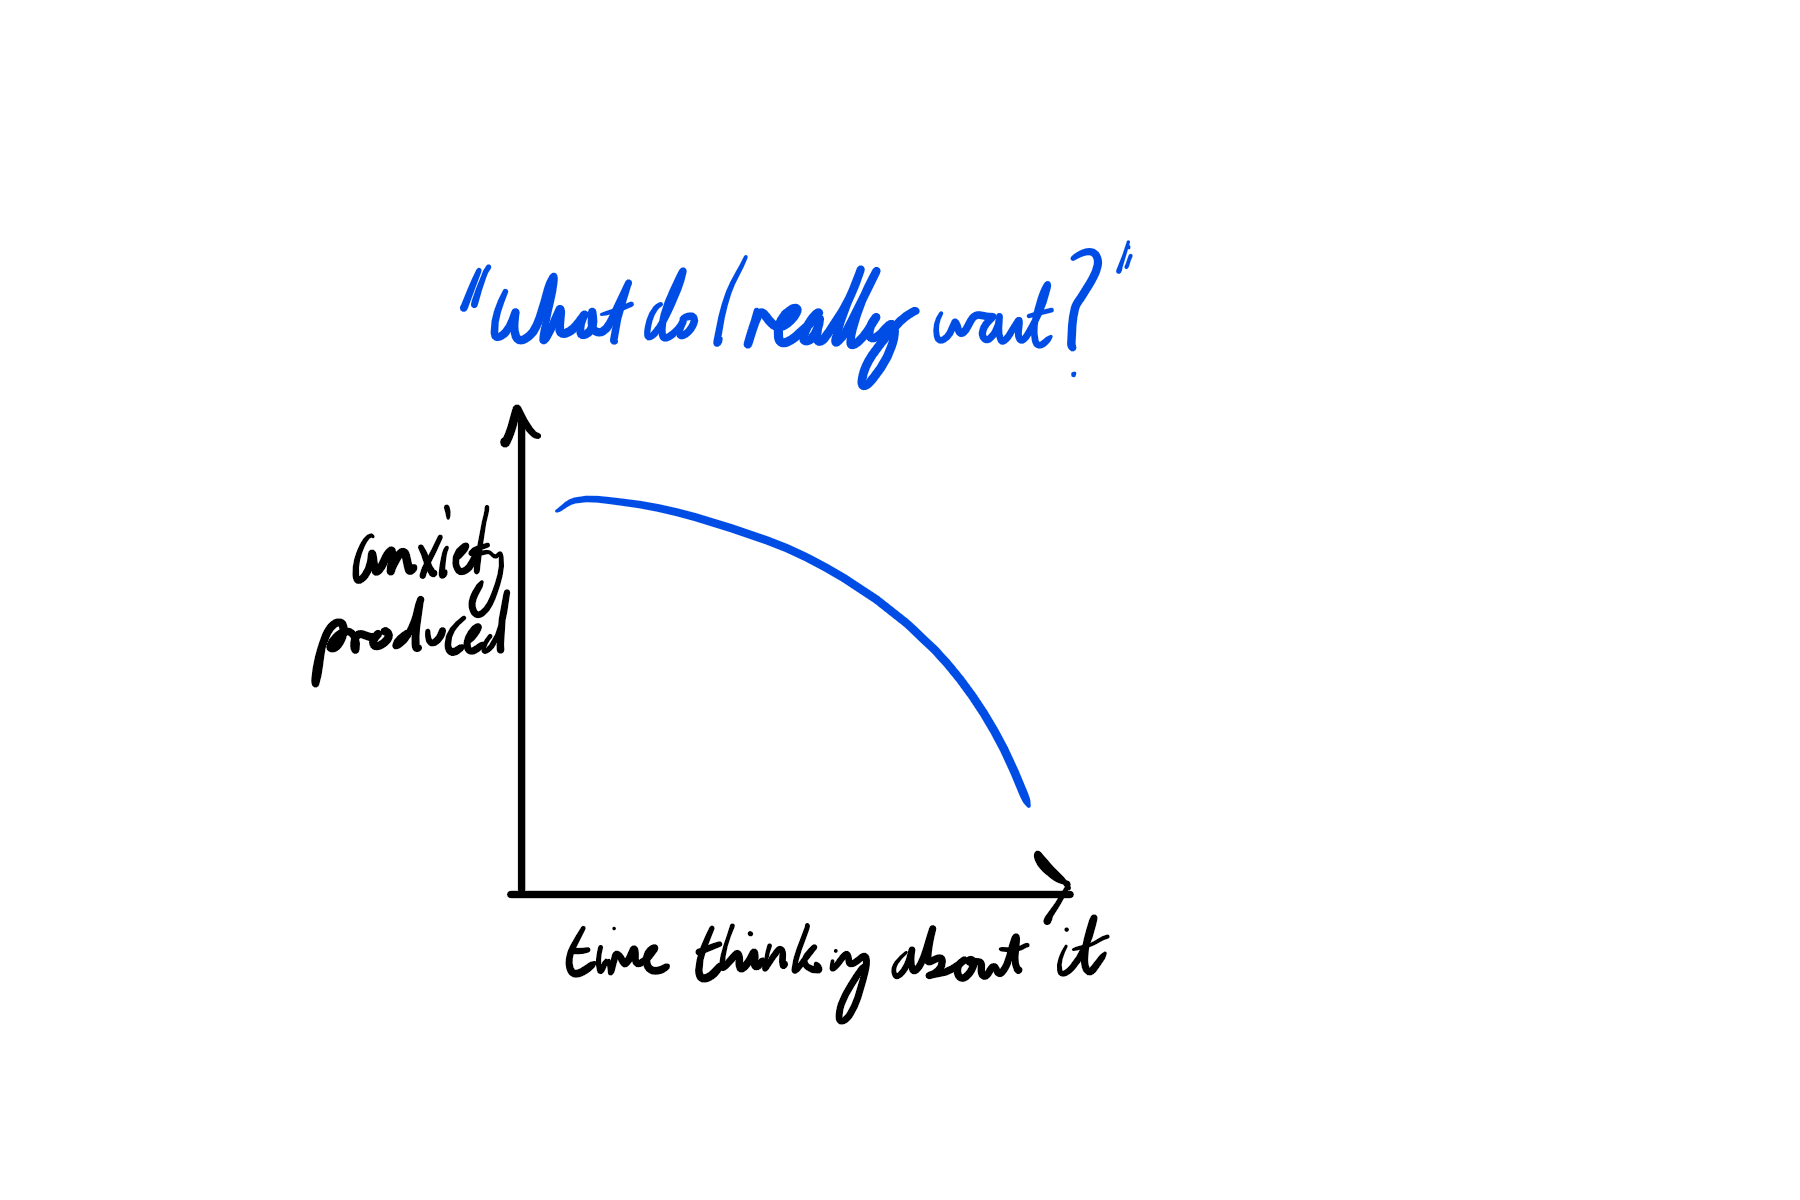 "What do I really want?"
anxiety
produced
time thinking about it